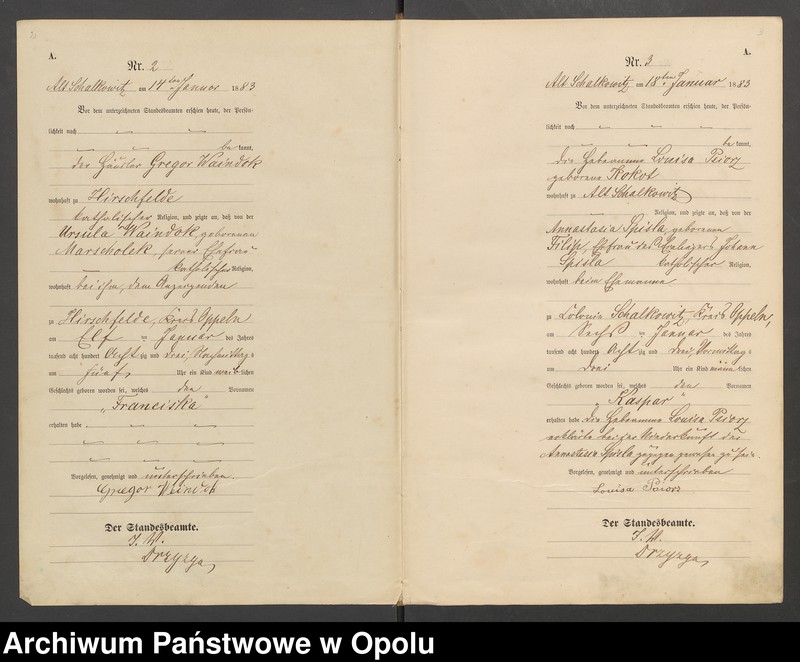 2
A.
Nr. 2
Alt Schalkowitz am 14ten Januar 1883
Vor dem unterzeichneten Standesbeamten erschien heute, der Persön-
lichkeit nach
bekannt,
der Häusler Gregor Waindok
wohnhaft zu Hirschfelde
katholischer Religion, und zeigte an, daß von der
Ursula Waindok geborenen
Marscholek, seiner Ehefrau
katholischer Religion,
wohnhaft bei ihm, dem Anzeigenden
zu Hirschfelde, Kreis Oppeln
am Elf ten Januar des Jahres
tausend acht hundert Achtzig und drei, Nachmittags
um fünf Uhr ein Kind weiblichen
Geschlechts geboren worden sei, welches den Vornamen
"Franciska"
erhalten habe
Vorgelesen, genehmigt und unterschrieben.
Gregor Waindok
Der Standesbeamte.
J. V.
Drzyzga
A.
Nr. 3
Alt Schalkowitz am 18ten Januar 1883
Vor dem unterzeichneten Standesbeamten erschien heute, der Persön-
lichkeit nach
bekannt,
die Hebamme Louisa Psiorz
geborene Kokot
wohnhaft zu Alt Schalkowitz
Religion, und zeigte an, daß von der
Annastasia Spisla, geborenen
Filip, Ehefrau des Johann
Spisla katholischer Religion,
wohnhaft beim Ehemanne
zu Colonie Schalkowitz, Kreis Oppeln,
am Sechs ten Januar des Jahres
tausend acht hundert Achtzig und drei, Vormittags
um drei Uhr ein Kind männlichen
Geschlechts geboren worden sei, welches den Vornamen
"Kaspar"
erhalten habe die Hebamme Louisa Psiorz
erklärte bei der Niederkunft der
Annastasia Spisla zugegen gewesen zu sein.
Vorgelesen, genehmigt und unterschrieben
Louisa Psiorz
Der Standesbeamte.
J. V.
Drzyzga
Archiwum Państwowe w Opolu